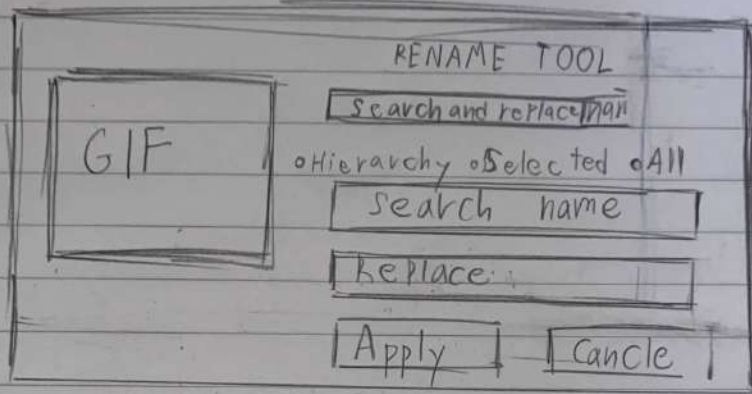 RENAME TOOL
Search and replace nam
GIF
Hierarchy Selected All
Search name
Replace
Apply Cancle